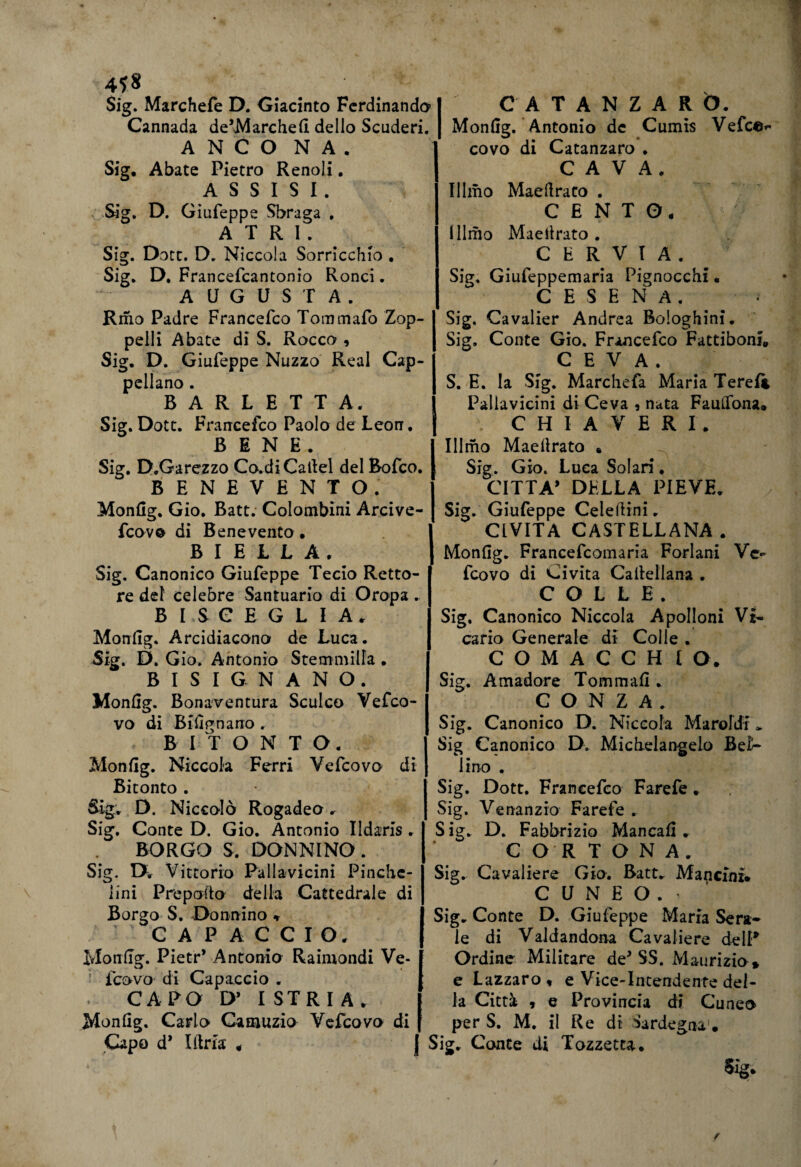 458
Sig. Marchese D. Giacinto Ferdinando
Cannada de'Marchesi dello Scuderi.
ANCONA.
Sig. Abate Pietro Renoli.
ASSISI.
Sig. D. Giuseppe Sbraga .
ATRI.
Sig. Dott. D. Niccola Sorricchio .
Sig. D. Francescantonio Ronci.
AUGUSTA.
Rm̃o Padre Francesco Tommaso Zop-
pelli Abate di S. Rocco ,
Sig. D. Giuseppe Nuzzo Real Cap-
pellano .
BARLETTA.
Sig. Dott. Francesco Paolo de Leon.
BENE.
Sig. D.Garezzo Co.di Castel del Bosco.
BENEVENTO.
Monsig. Gio. Batt. Colombini Arcive-
scovo di Benevento .
BIELLA.
Sig. Canonico Giuseppe Tecio Retto-
re del celebre Santuario di Oropa .
BISCEGLIA.
Monsig. Arcidiacono de Luca.
Sig. D. Gio. Antonio Stemmilla .
BISIGNANO.
Monsig. Bonaventura Sculco Vesco-
vo di Bisignano .
BITONTO.
Monsig. Niccola Ferri Vescovo di
Bitonto .
Sig. D. Niccolò Rogadeo .
Sig. Conte D. Gio. Antonio Ildaris .
BORGO S. DONNINO.
Sig. D. Vittorio Pallavicini Pinche-
lini Preposto della Cattedrale di
Borgo S. Donnino ,
CAPACCIO.
Monsig. Pietr' Antonio Raimondi Ve-
scovo di Capaccio .
CAPO D' ISTRIA.
Monsig. Carlo Camuzio Vescovo di
Capo d' Istria .
CATANZARO.
Monsig. Antonio de Cumis Vesco-
covo di Catanzaro .
CAVA.
Illm̃o Maestrato .
CENTO.
Illm̃o Maestrato .
CERVIA.
Sig. Giuseppemaria Pignocchi .
CESENA.
Sig. Cavalier Andrea Bologhini.
Sig. Conte Gio. Francesco Fattiboni.
CEVA.
S. E. la Sig. Marchesa Maria Teresa
Pallavicini di Ceva , nata Faussona.
CHIAVERI.
Illm̃o Maestrato .
Sig. Gio. Luca Solari.
CITTA' DELLA PIEVE.
Sig. Giuseppe Celestini.
CIVITA CASTELLANA .
Monsig. Francescomaria Forlani Ve-
scovo di Civita Castellana .
COLLE.
Sig. Canonico Niccola Apolloni Vi-
cario Generale di Colle .
COMACCHIO.
Sig. Amadore Tommasi .
CONZA.
Sig. Canonico D. Niccola Maroldi .
Sig Canonico D. Michelangelo Bel-
lino .
Sig. Dott. Francesco Farese .
Sig. Venanzio Farese .
Sig. D. Fabbrizio Mancasi .
CORTONA.
Sig. Cavaliere Gio. Batt. Mancini.
CUNEO.
Sig. Conte D. Giuseppe Maria Sera-
le di Valdandona Cavaliere dell'
Ordine Militare de' SS. Maurizio,
e Lazzaro , e Vice-Intendente del-
la Città , e Provincia di Cuneo
per S. M. il Re di Sardegna .
Sig. Conte di Tozzetta.
Sig.